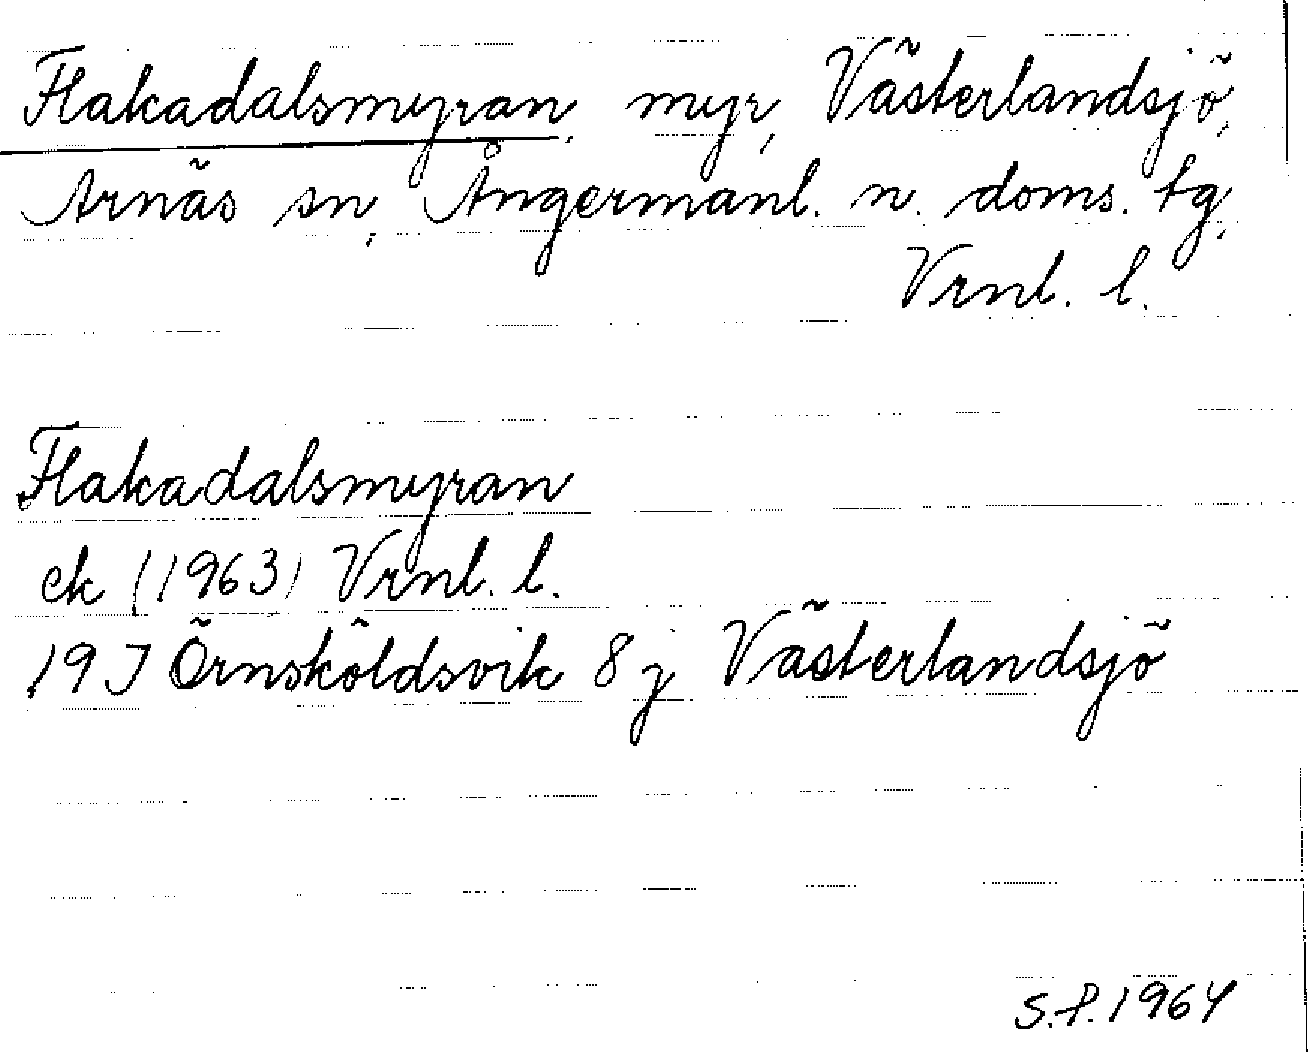 Flakadalsmyran, myr, Västerlandsjö,
Arnäs sn, Ångermanl. n. doms. tg,
Vrnl. l.
Flakadalsmyran
ek (1963) Vrnl. l.
19 J Örnsköldsvik 8 j Västerlandsjö
S.P. 1964